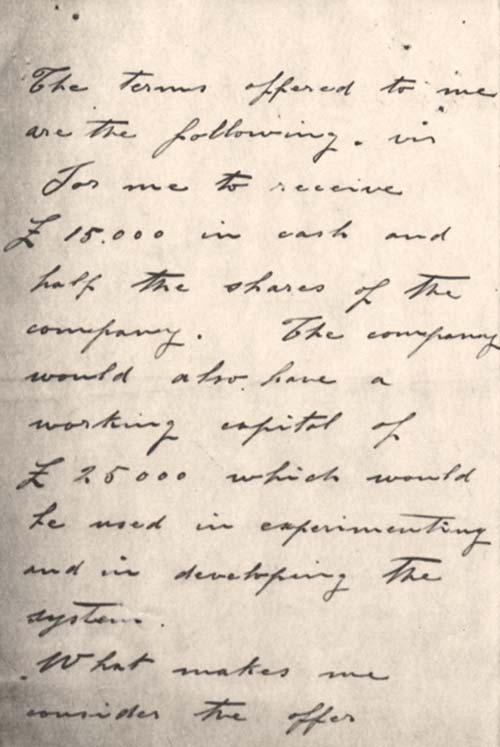 The terms offered to me
are the following. viz
For me to receive
£ 15.000 in cash and
half the shares of the
company. The company
would also have a
working capital of
£ 25000 which would
be used in experimenting
and in developing the
system.
What makes me
consider the offer